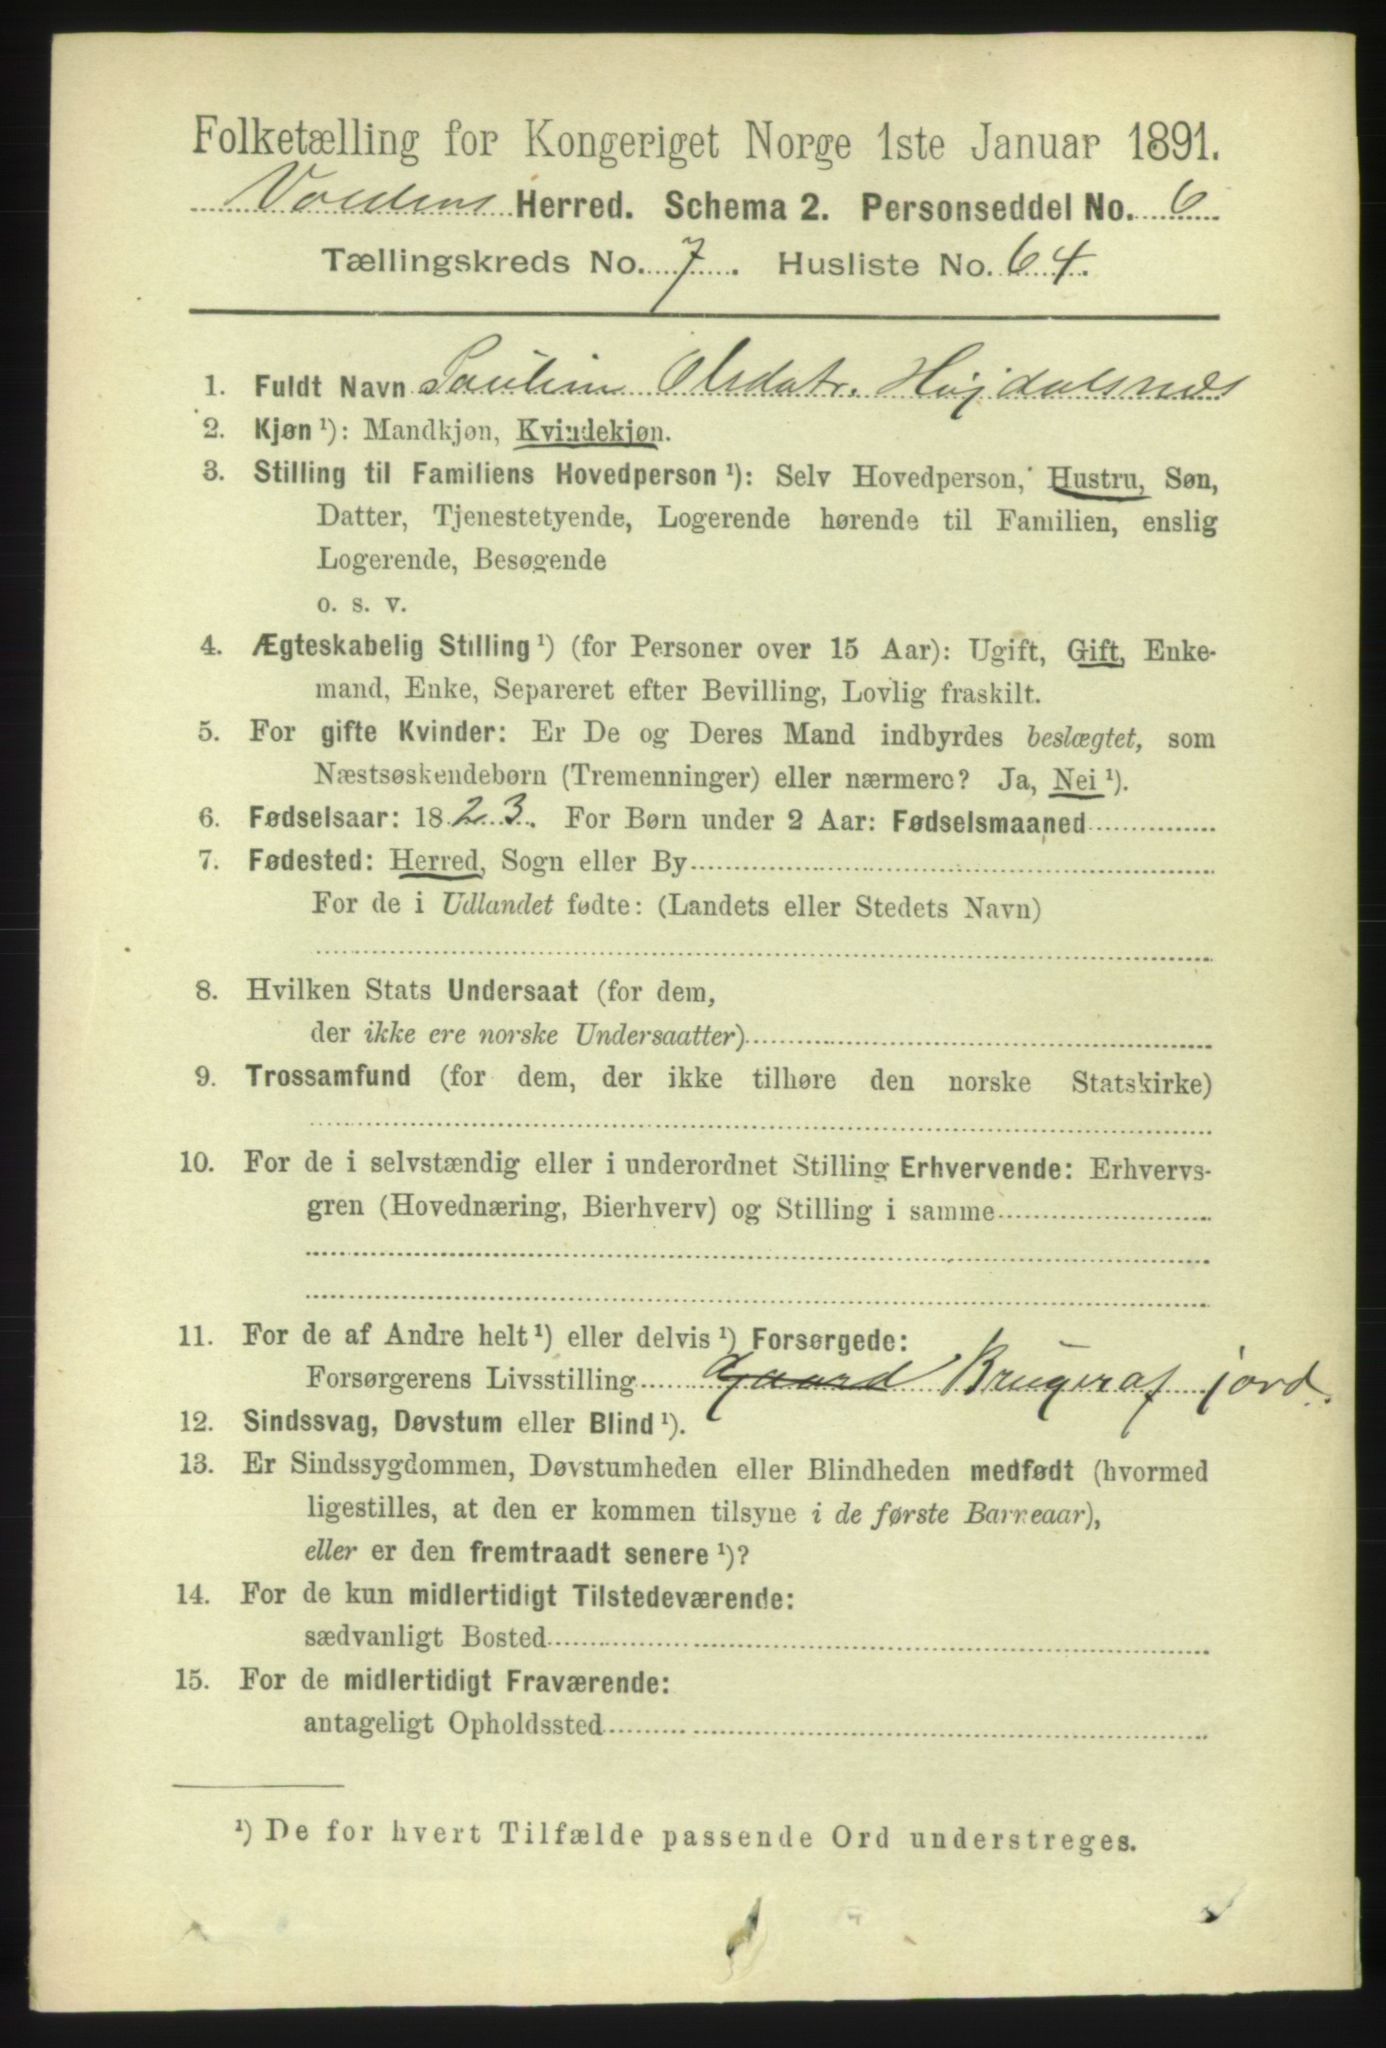 Folketælling for Kongeriget Norge 1ste Januar 1891.
Voldens Herred. Schema 2. Personseddel No. 6
Tællingskreds No. 7. Husliste No. 64.
1. Fuldt Navn Paulin Olsdatr. Højdalsnes
2. Kjøn ¹): Mandkjøn, Kvindekjøn.
3. Stilling til Familiens Hovedperson ¹): Selv Hovedperson, Hustru, Søn,
Datter, Tjenestetyende, Logerende hørende til Familien, enslig
Logerende, Besøgende
o. s. v.
4. Ægteskabelig Stilling ¹) (for Personer over 15 Aar): Ugift, Gift, Enke-
mand, Enke, Separeret efter Bevilling, Lovlig fraskilt.
5. For gifte Kvinder: Er De og Deres Mand indbyrdes beslægtet, som
Næstsøskendebørn (Tremenninger) eller nærmere? Ja, Nei ¹).
6. Fødselsaar: 1823. For Børn under 2 Aar: Fødselsmaaned
7. Fødested: Herred, Sogn eller By
For de i Udlandet fødte: (Landets eller Stedets Navn)
8. Hvilken Stats Undersaat (for dem,
der ikke ere norske Undersaatter)
9. Trossamfund (for dem, der ikke tilhøre den norske Statskirke)
10. For de i selvstændig eller i underordnet Stilling Erhvervende: Erhvervs-
gren (Hovednæring, Bierhverv) og Stilling i samme
11. For de af Andre helt ¹) eller delvis ¹) Forsørgede:
Forsørgerens Livsstilling Gaard Bruger af jord.
12. Sindssvag, Døvstum eller Blind ¹).
13. Er Sindssygdommen, Døvstumheden eller Blindheden medfødt (hvormed
ligestilles, at den er kommen tilsyne i de første Barneaar),
eller er den fremtraadt senere ¹)?
14. For de kun midlertidigt Tilstedeværende:
sædvanligt Bosted
15. For de midlertidigt Fraværende:
antageligt Opholdssted
¹) De for hvert Tilfælde passende Ord understreges.